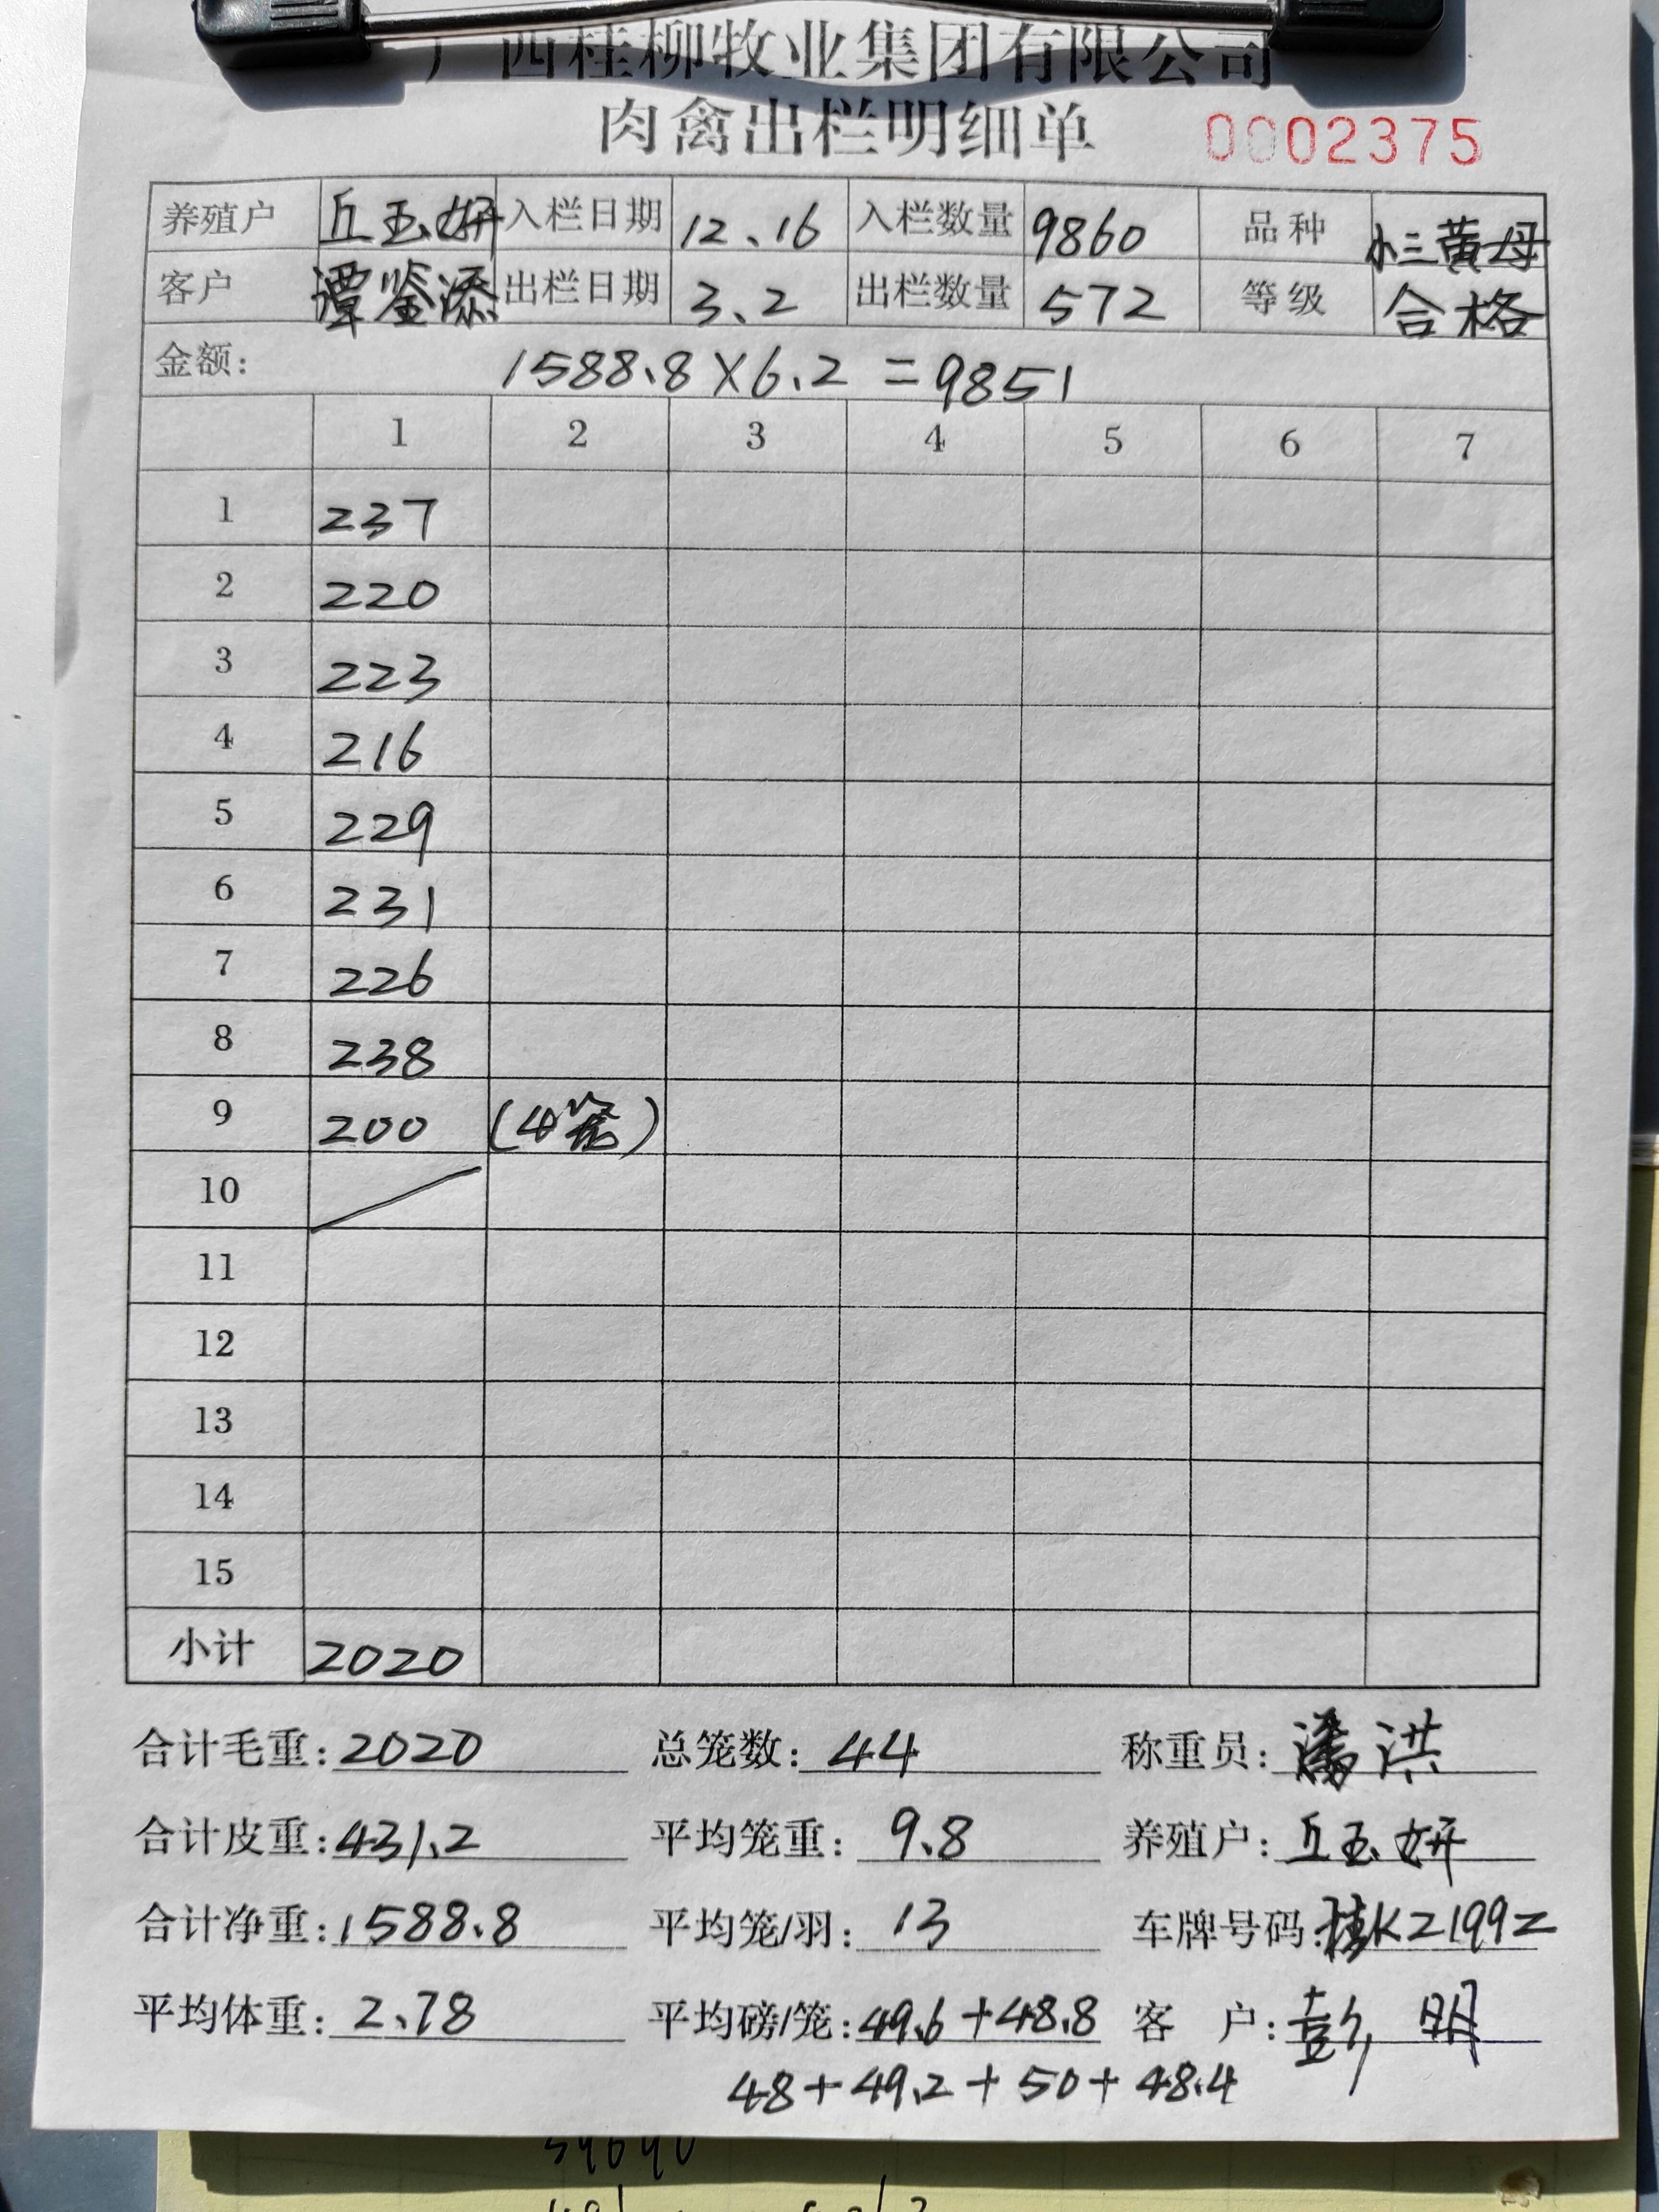 广西桂柳牧业集团有限公司
肉禽出栏明细单 0002375
养殖户 丘玉妍 入栏日期 12.16 入栏数量 9860 品种 小三黄母
客户 谭鉴添 出栏日期 3.2 出栏数量 572 等级 合格
金额: 1588.8×6.2=9851
1 2 3 4 5 6 7
1 237
2 220
3 223
4 216
5 229
6 231
7 226
8 238
9 200 (4笼)
10
11
12
13
14
15
小计 2020
合计毛重: 2020 总笼数: 44 称重员: 潘洪
合计皮重: 431.2 平均笼重: 9.8 养殖户: 丘玉妍
合计净重: 1588.8 平均笼/羽: 13 车牌号码: 桂K21992
平均体重: 2.78 平均磅/笼: 49.6+48.8 客 户: 彭 明
48+49.2+50+48.4